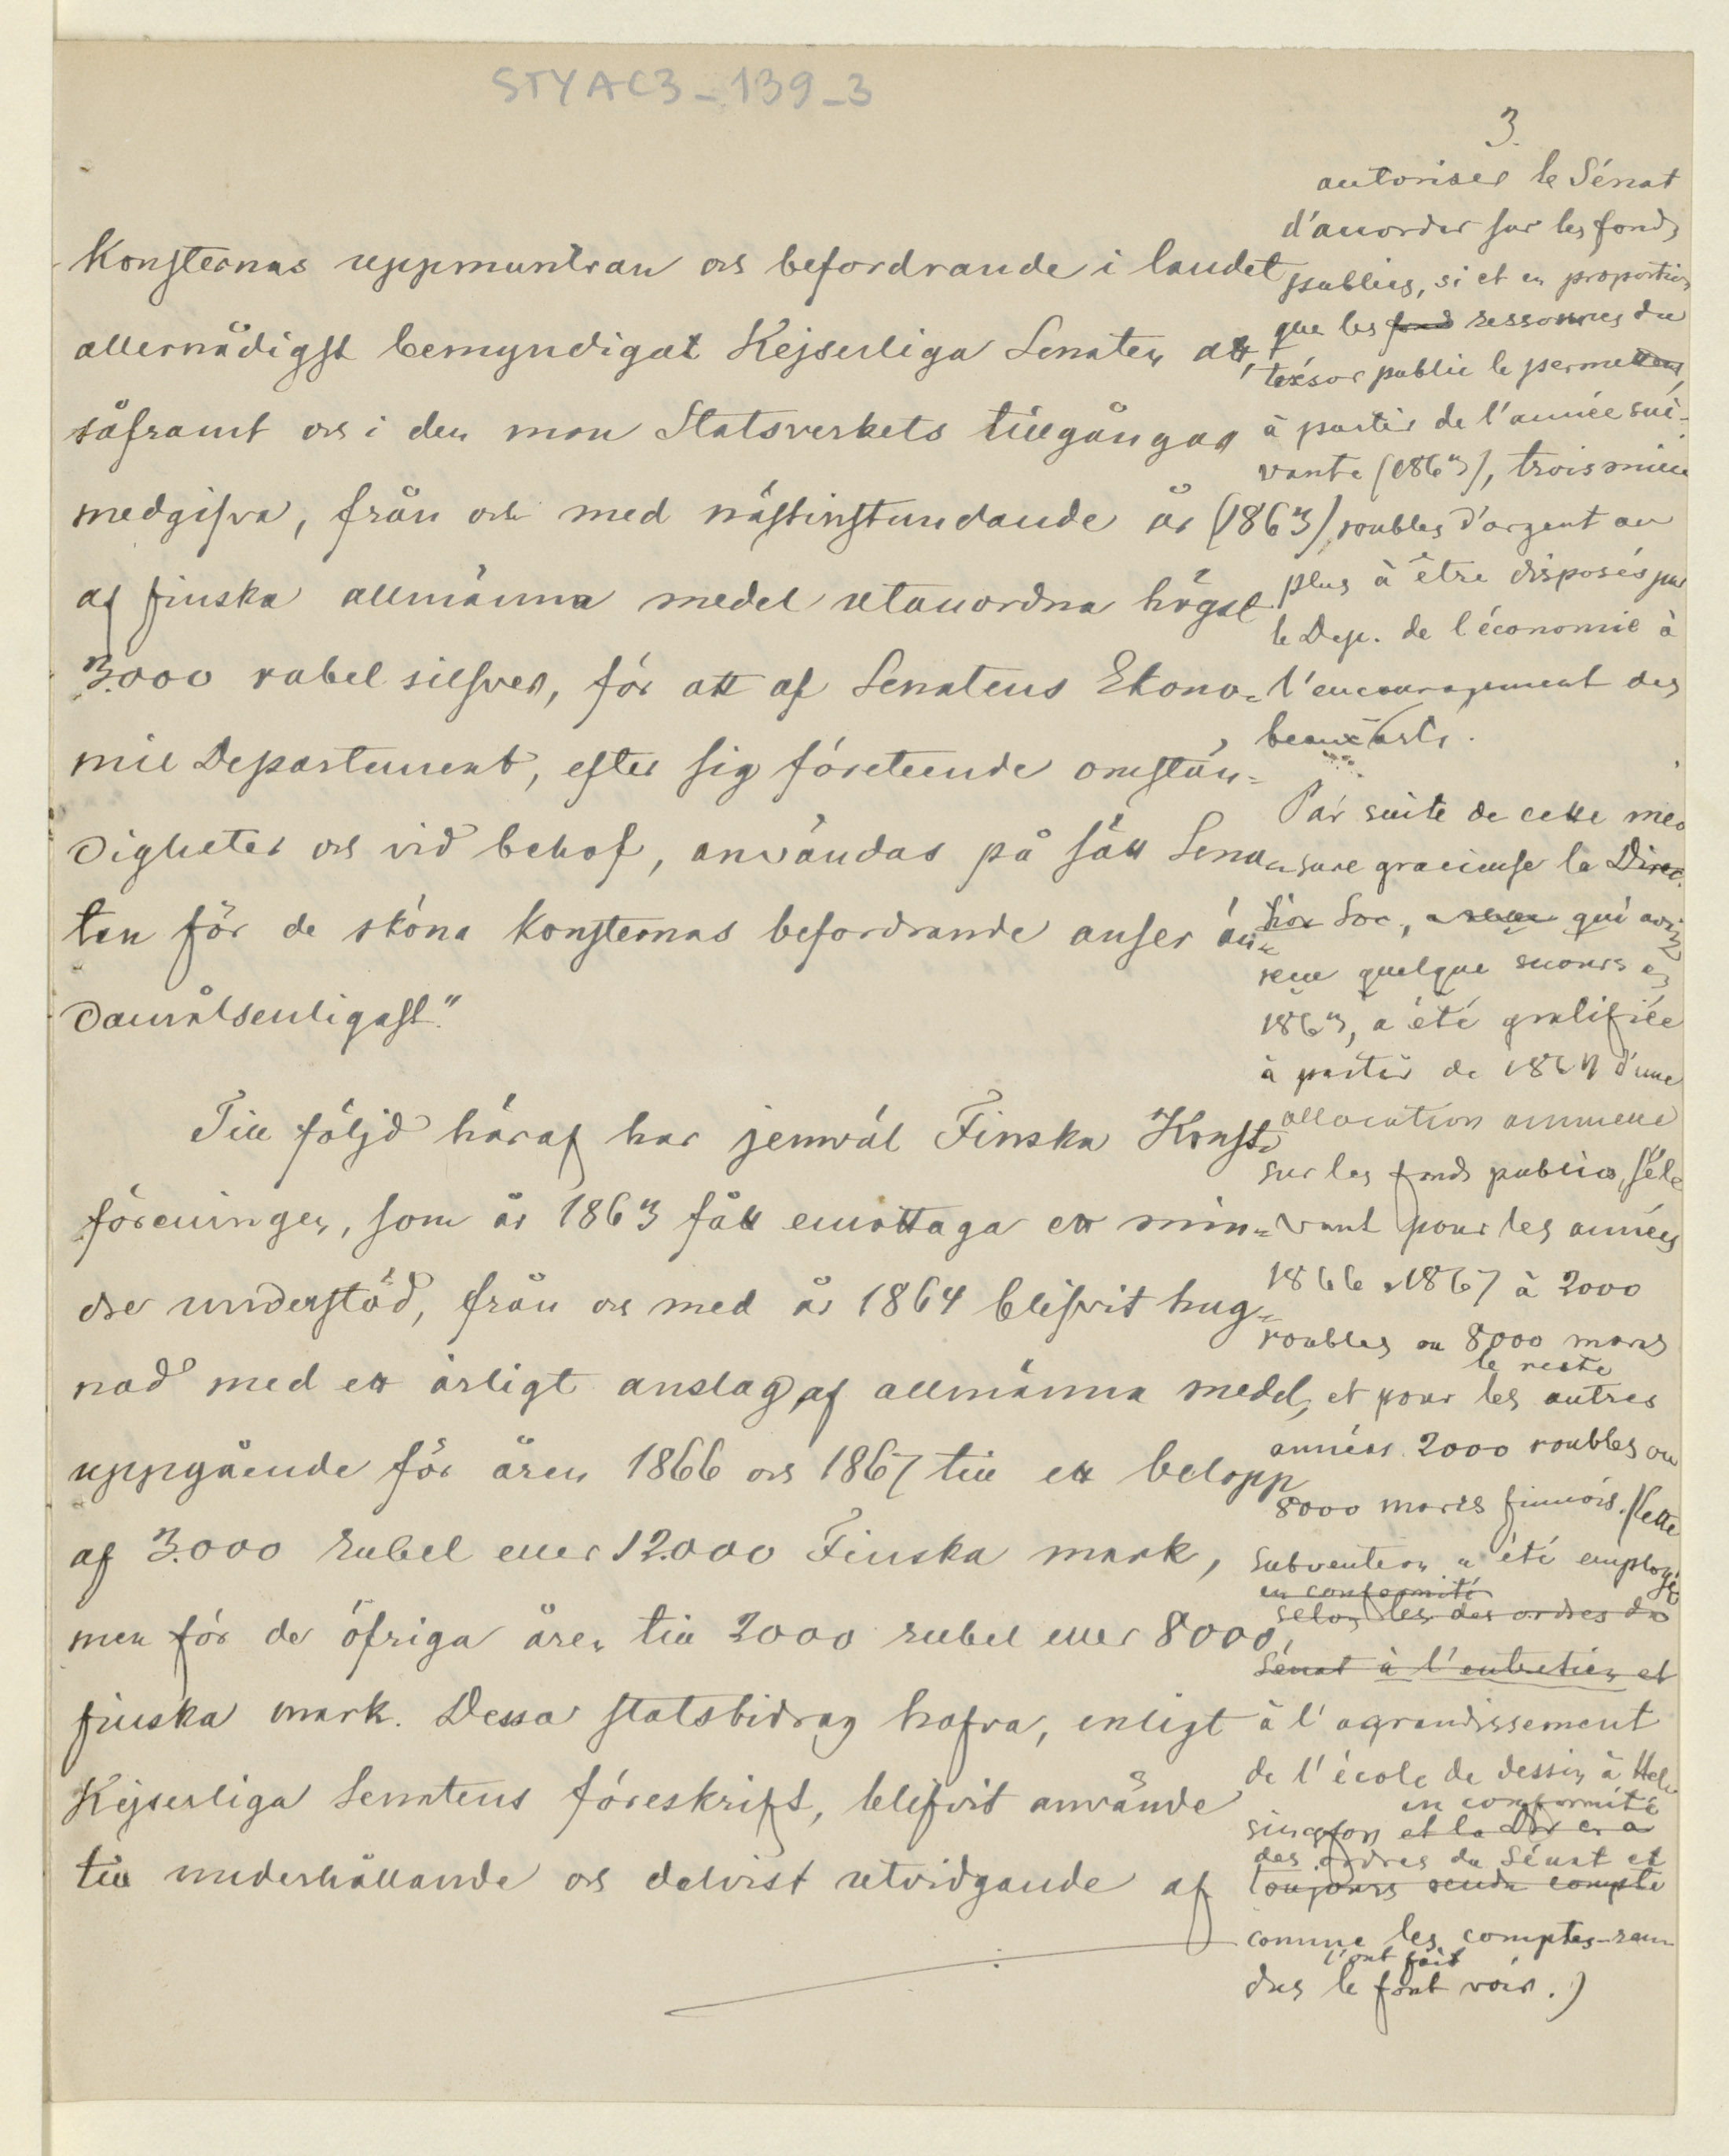 STYAC3_139_3
3.
Konsternas uppmuntran och befordrande i landet
allernådigst bemyndigat Kejserliga Senaten att,
såframt och i den mon Statsverkets tillgångar
medgifva, från och med nästinstundande år (1863)
af finska allmänna medel utanordna högst
3.000 rubel silfver, för att af Senatens Ekono=
mie Departement, efter sig företeende omstän=
digheter och vid behof, användas på sätt Sena=
ten för de sköna konsternas befordrande anser än=
damålsenligast."
Till följd häraf har jemväl Finska Konst=
föreningen, som år 1863 fått emottaga ett min=
dre understöd, från och med år 1864 blifvit hug=
nad med ett årligt anslag af allmänna medel,
uppgående för åren 1866 och 1867 till ett belopp
af 3.000 rubel eller 12.000 Finska mark,
men för de öfriga åren till 2000 rubel eller 8000
finska mark. Dessa statsbidrag hafva, enligt
Kejserliga Senatens föreskrift, blifvit använde
till underhållande och delvist utvidgande af
autoriser le Sénat
d'accorder sur les fonds
publics, si et en proportion
que les fonds ressources du
trésor public le permettent,
à partir de l'année sui-
vante (1863), trois mille
roubles d'argent au
plus à être disposés par
le Dep. de l'économie à
l'encouragement des
beaux arts.
Par suite de cette me
sure gracieuse la Direc.
tion Soc., qui avait
reçu quelque secours en
1863, a été gratifiée
à partir de 1864 d'une
allocation annuelle
sur les fonds publics, s'éle
vant pour les années
1866 & 1867 à 3000
roubles ou 8000 marcs
le reste
et pour les autres
années 2000 roubles ou
8000 marcs finnois. (Cette
subvention a été employée
en conformité
selon les des ordres du
Sénat à l'entretien et
à l'agrandissement
de l'école de dessin à Hel
en conformité
singfors et la Dir en a
des ordres du Sénat et
toujours rendu compte
comme les comptes-ren
l'ont fait
dus le font voir.)